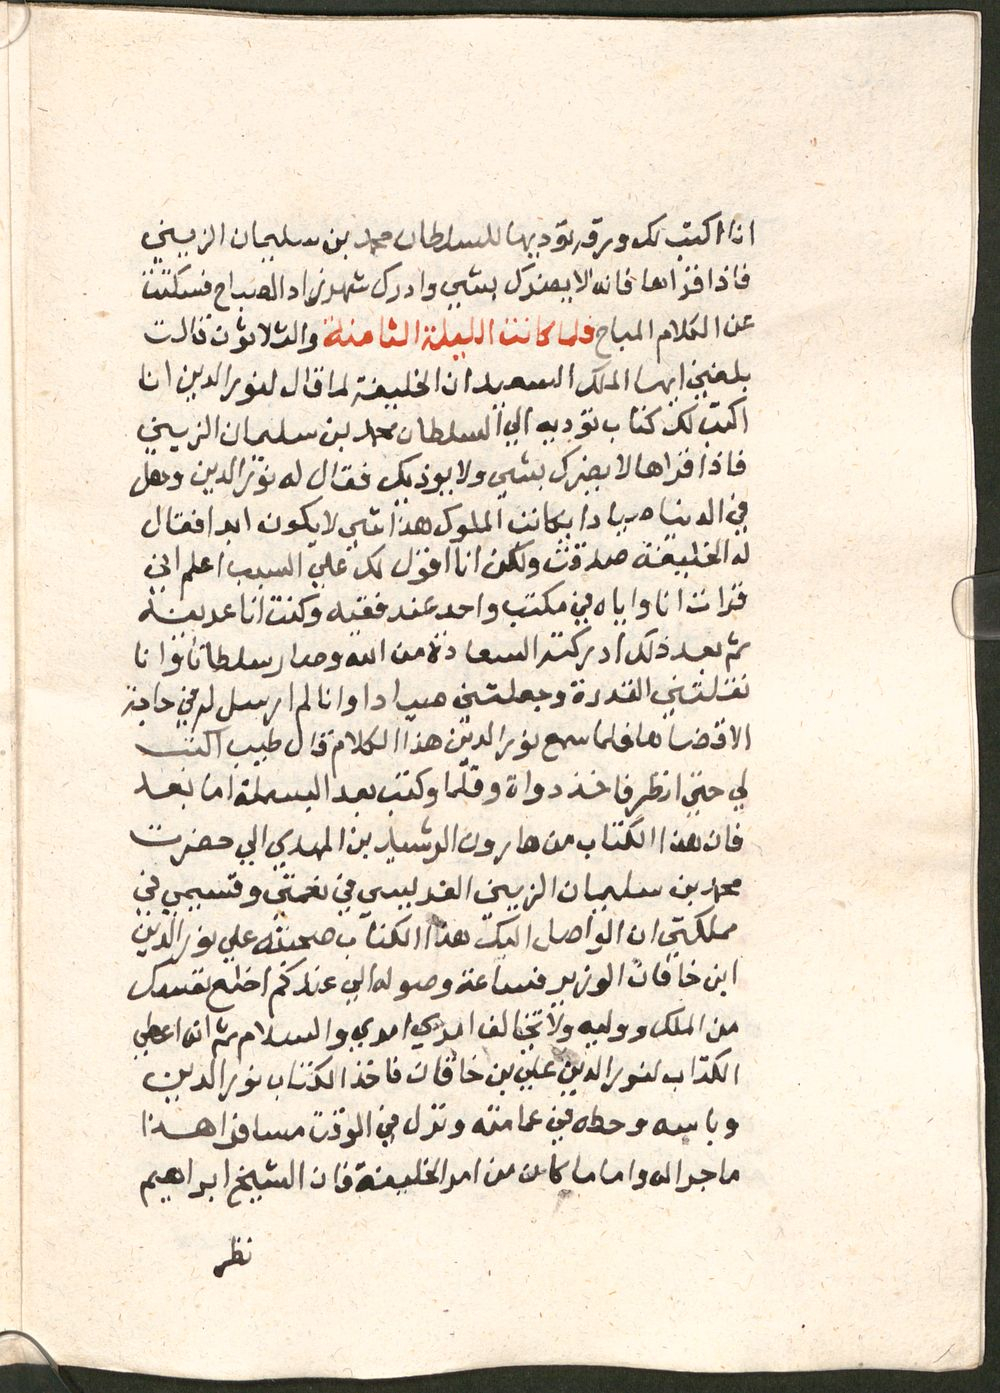 انا اكتب لك ورقه تؤديها للسلطان محمد بن سليمان الزيني
فاذا قراها فانه لا يضرك بشي وادرك شهرزاد الصباح فسكتت
عن الكلام المباح فلما كانت الليلة الثامنة والثلاثون قالت
بلغني ايها الملك السعيد ان الخليفة لما قال لنور الدين انا
اكتب لك كتاب تؤديه الي السلطان محمد بن سليمان الزيني
فاذا قراها لا يضرك بشي ولا يوذيك فقال له نور الدين وهل
في الدنيا صيادا يكاتب الملوك هذا شي لا يكون ابدا فقال
له الخليفة صدقت ولكن انا اقول لك علي السبب اعلم اني
قرات انا واياه في مكتب واحد عند فقيه وكنت انا عريفه
ثم بعد ذلك ادركته السعادة من الله وصار سلطانا وانا
نقلتني القدرة وجعلتني صيادا وانا لم ارسل له في حاجة
الا قضاها فلما سمع نور الدين هذا الكلام قال طيب اكتب
لي حتي انظر فاخذ دواة وقلما وكتب بعد البسملة اما بعد
فان هذا الكتاب من هارون الرشيد بن المهدي الي حضرت
محمد بن سليمان الزيني في نعمتي وقسيمي في
مملكتي ان الواصل اليك هذا الكتاب صحبته علي نور الدين
ابن خاقان الوزير فساعة وصوله الي عندكم اخلع نفسك
من الملك ووليه ولا تخالف امري والسلام ثم انه اعطي
الكتاب لنور الدين علي بن خاقان فاخذ الكتاب نور الدين
وباسه وحطه في عمامته ونزل في الوقت مسافرا هذا
ما جرا له واما ما كان من امر الخليفة فان الشيخ ابراهيم
نظر